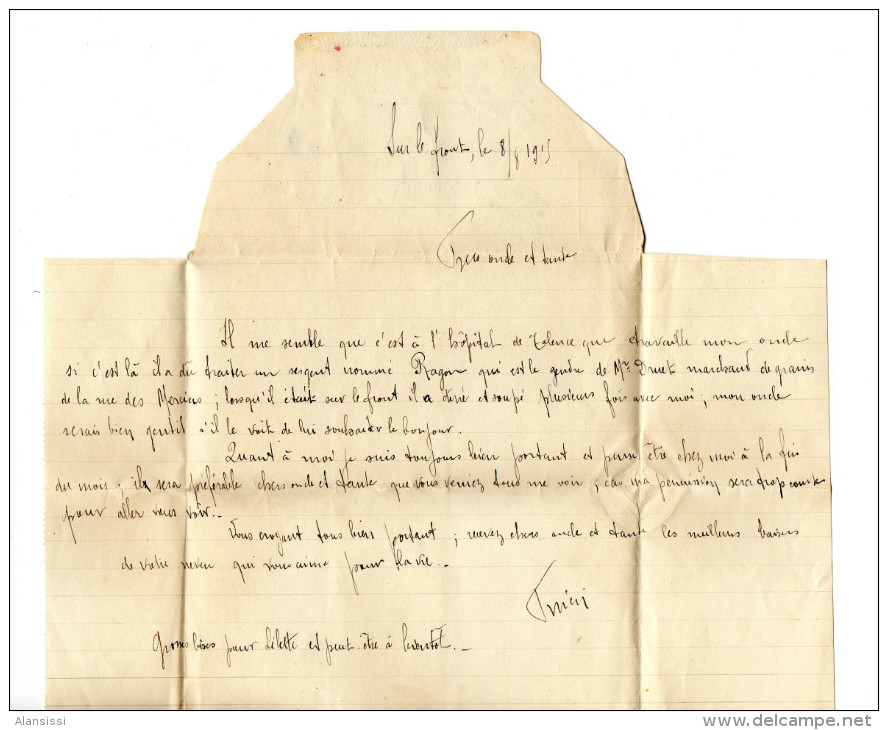 Sur le front, le 8/8 1915
Chers oncle et tante
Il me semble que c'est à l'hôpital de Talence que travaille mon oncle
si c'est là il a du traiter un sergent nommé Ragon qui est le gendre de Mr. Druet marchand de grains
de la rue des Merciers ; lorsqu'il était sur le front il a diné et soupé plusieurs fois avec moi ; mon oncle
serais bien gentil s'il le voit de lui souhaiter le bonjour.
Quant à moi je suis toujours bien portant et pense être chez moi à la fin
du mois ; il sera préférable chers oncle et tante que vous veniez tous me voir ; car ma permission sera trop courte
pour aller vous voir.-
Vous croyant tous bien portant ; recevez chers oncle et tante les meilleurs baisers
de votre neveu qui vous aime pour la vie.-
Grosses bises pour Lilette et peut-être à bientôt.-
Alansissi
www.delcampe.net